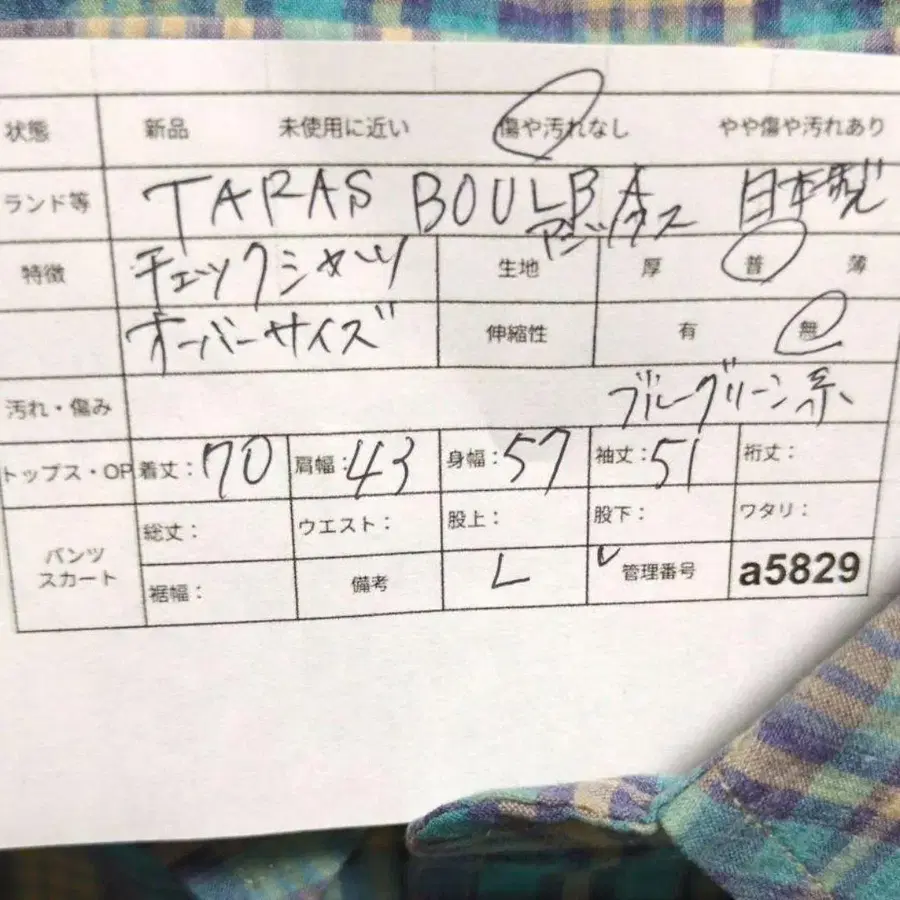 状態 新品 未使用に近い 傷や汚れなし やや傷や汚れあり
ランド等 TARAS BOULBA 日本製
アシックス
特徴 チェックシャツ 生地 厚 普 薄
オーバーサイズ 伸縮性 有 無
汚れ・傷み ブルーグリーン系
トップス・OP 着丈：70 肩幅：43 身幅：57 袖丈：51 裄丈：
パンツ スカート 総丈： ウエスト： 股上： 股下： ワタリ：
裾幅： 備考 L 管理番号 a5829